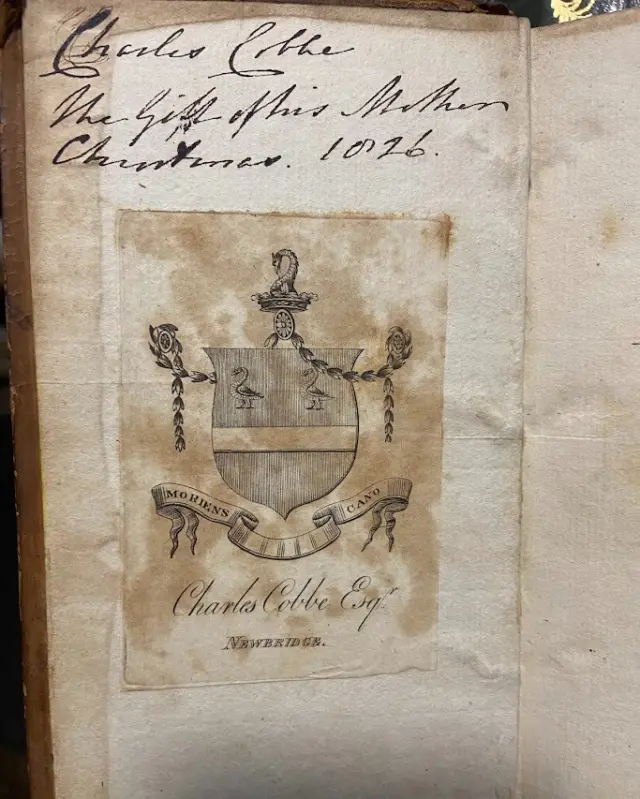 Charles Cobbe
The Gift of his Mother
Christmas. 1826.
MORIENS CANO
Charles Cobbe Esqr.
NEWBRIDGE.